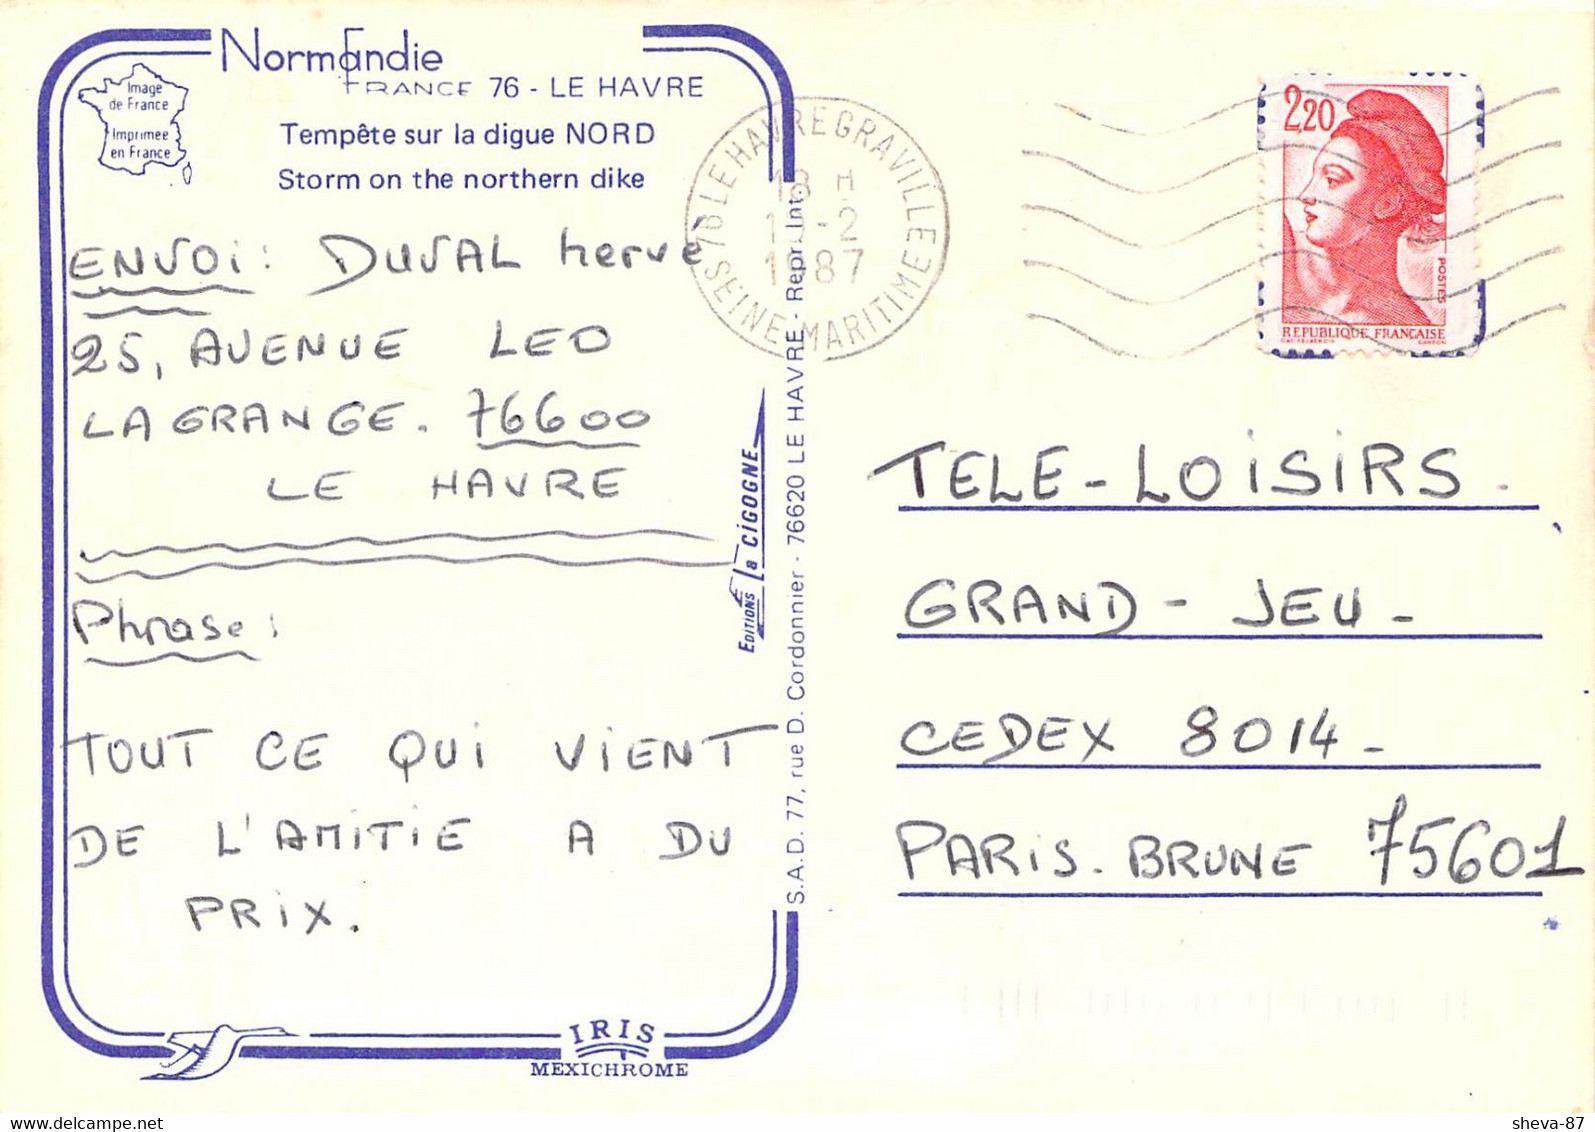 Normandie
FRANCE 76 - LE HAVRE
Image
de France
Imprimée
en France
Tempête sur la digue NORD
Storm on the northern dike
ENVOI: DUVAL hervé
25, AVENUE LEO
LAGRANGE. 76600
LE HAVRE
Phrase:
TOUT CE QUI VIENT
DE L'AMITIE A DU
PRIX.
IRIS
MEXICHROME
EDITIONS La CIGOGNE
S.A.D. 77, rue D. Cordonnier - 76620 LE HAVRE - Repr. Int.
76 LE HAVRE GRAVILLE
18 H
-2
1987
SEINE-MARITIME
2,20
POSTES
REPUBLIQUE FRANÇAISE
TELE-LOISIRS.
GRAND-JEU-
CEDEX 8014-
PARIS-BRUNE 75601
sheva-87